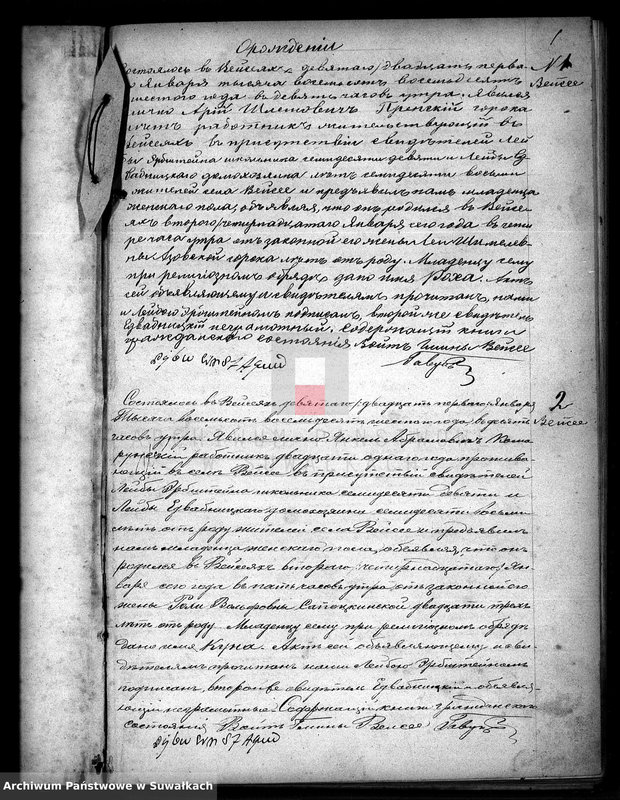 О рождении
1
Состоялось в Вейсеях девятаго/двадцать перва-
го Января тысяча восемьсот восемьдесят
шестого года в девять часов утра. Явился
лично Шлемович сорока
лет работник жительствующий в
Вейсеях в присутствии свидетелей Лей-
бы Эрбштейна школьника семидесяти девяти и Лейбы Ед-
вабницкаго домохозяина лет семидесяти восьми
жителей села Вейсее и предъявил нам младенца
женскаго пола, объявляя, что он родился в Вейсе-
ях второго/четырнадцатаго Января сего года в четы-
ре часа утра от законной его жены Леи
сорока лет от роду. Младенцу сему
при религиозном обряде дано имя Роха. Акт
сей объявляющему и свидетелям прочитан, нами
и Лейбою Эрбштейном подписан, второй же свидетель
Едвабницкий неграмотный. Содержащий книги
гражданскаго состояния Войт Гмины Вейсее
№ 1
Вейсее
Состоялось в Вейсеях девятаго/двадцать перваго Января
Тысяча восемьсот восемьдесят шестого года, в десять
часов утра. Явился лично Янкель Абрамович
работник двадцати одного года, прожива-
ющий в селе Вейсее в присутствии свидетелей
Лейбы Эрбштейна школьника семидесяти девяти и
Лейбы Едвабницкаго домохозяина семидесяти восьми
лет от роду жителей села Вейсее и предъявил
нам младенца женскаго пола, объявляя, что он
родился в Вейсеях второго/четырнадцатаго Ян-
варя сего года в пять часов утра от законной его
жены Голи Вольфовны Сапоцкинской двадцати трех
лет от роду. Младенцу сему при религиозном обряде
дано имя Куна. Акт сей объявляющему и сви-
детелям прочитан нами Лейбою Эрбштейном
подписан, второй же свидетель Едвабницкий и объявля-
ющий неграмотные. Содержащий книги гражданскаго
состояния Войт Гмины Вейсее
2
Вейсее
Archiwum Państwowe w Suwałkach